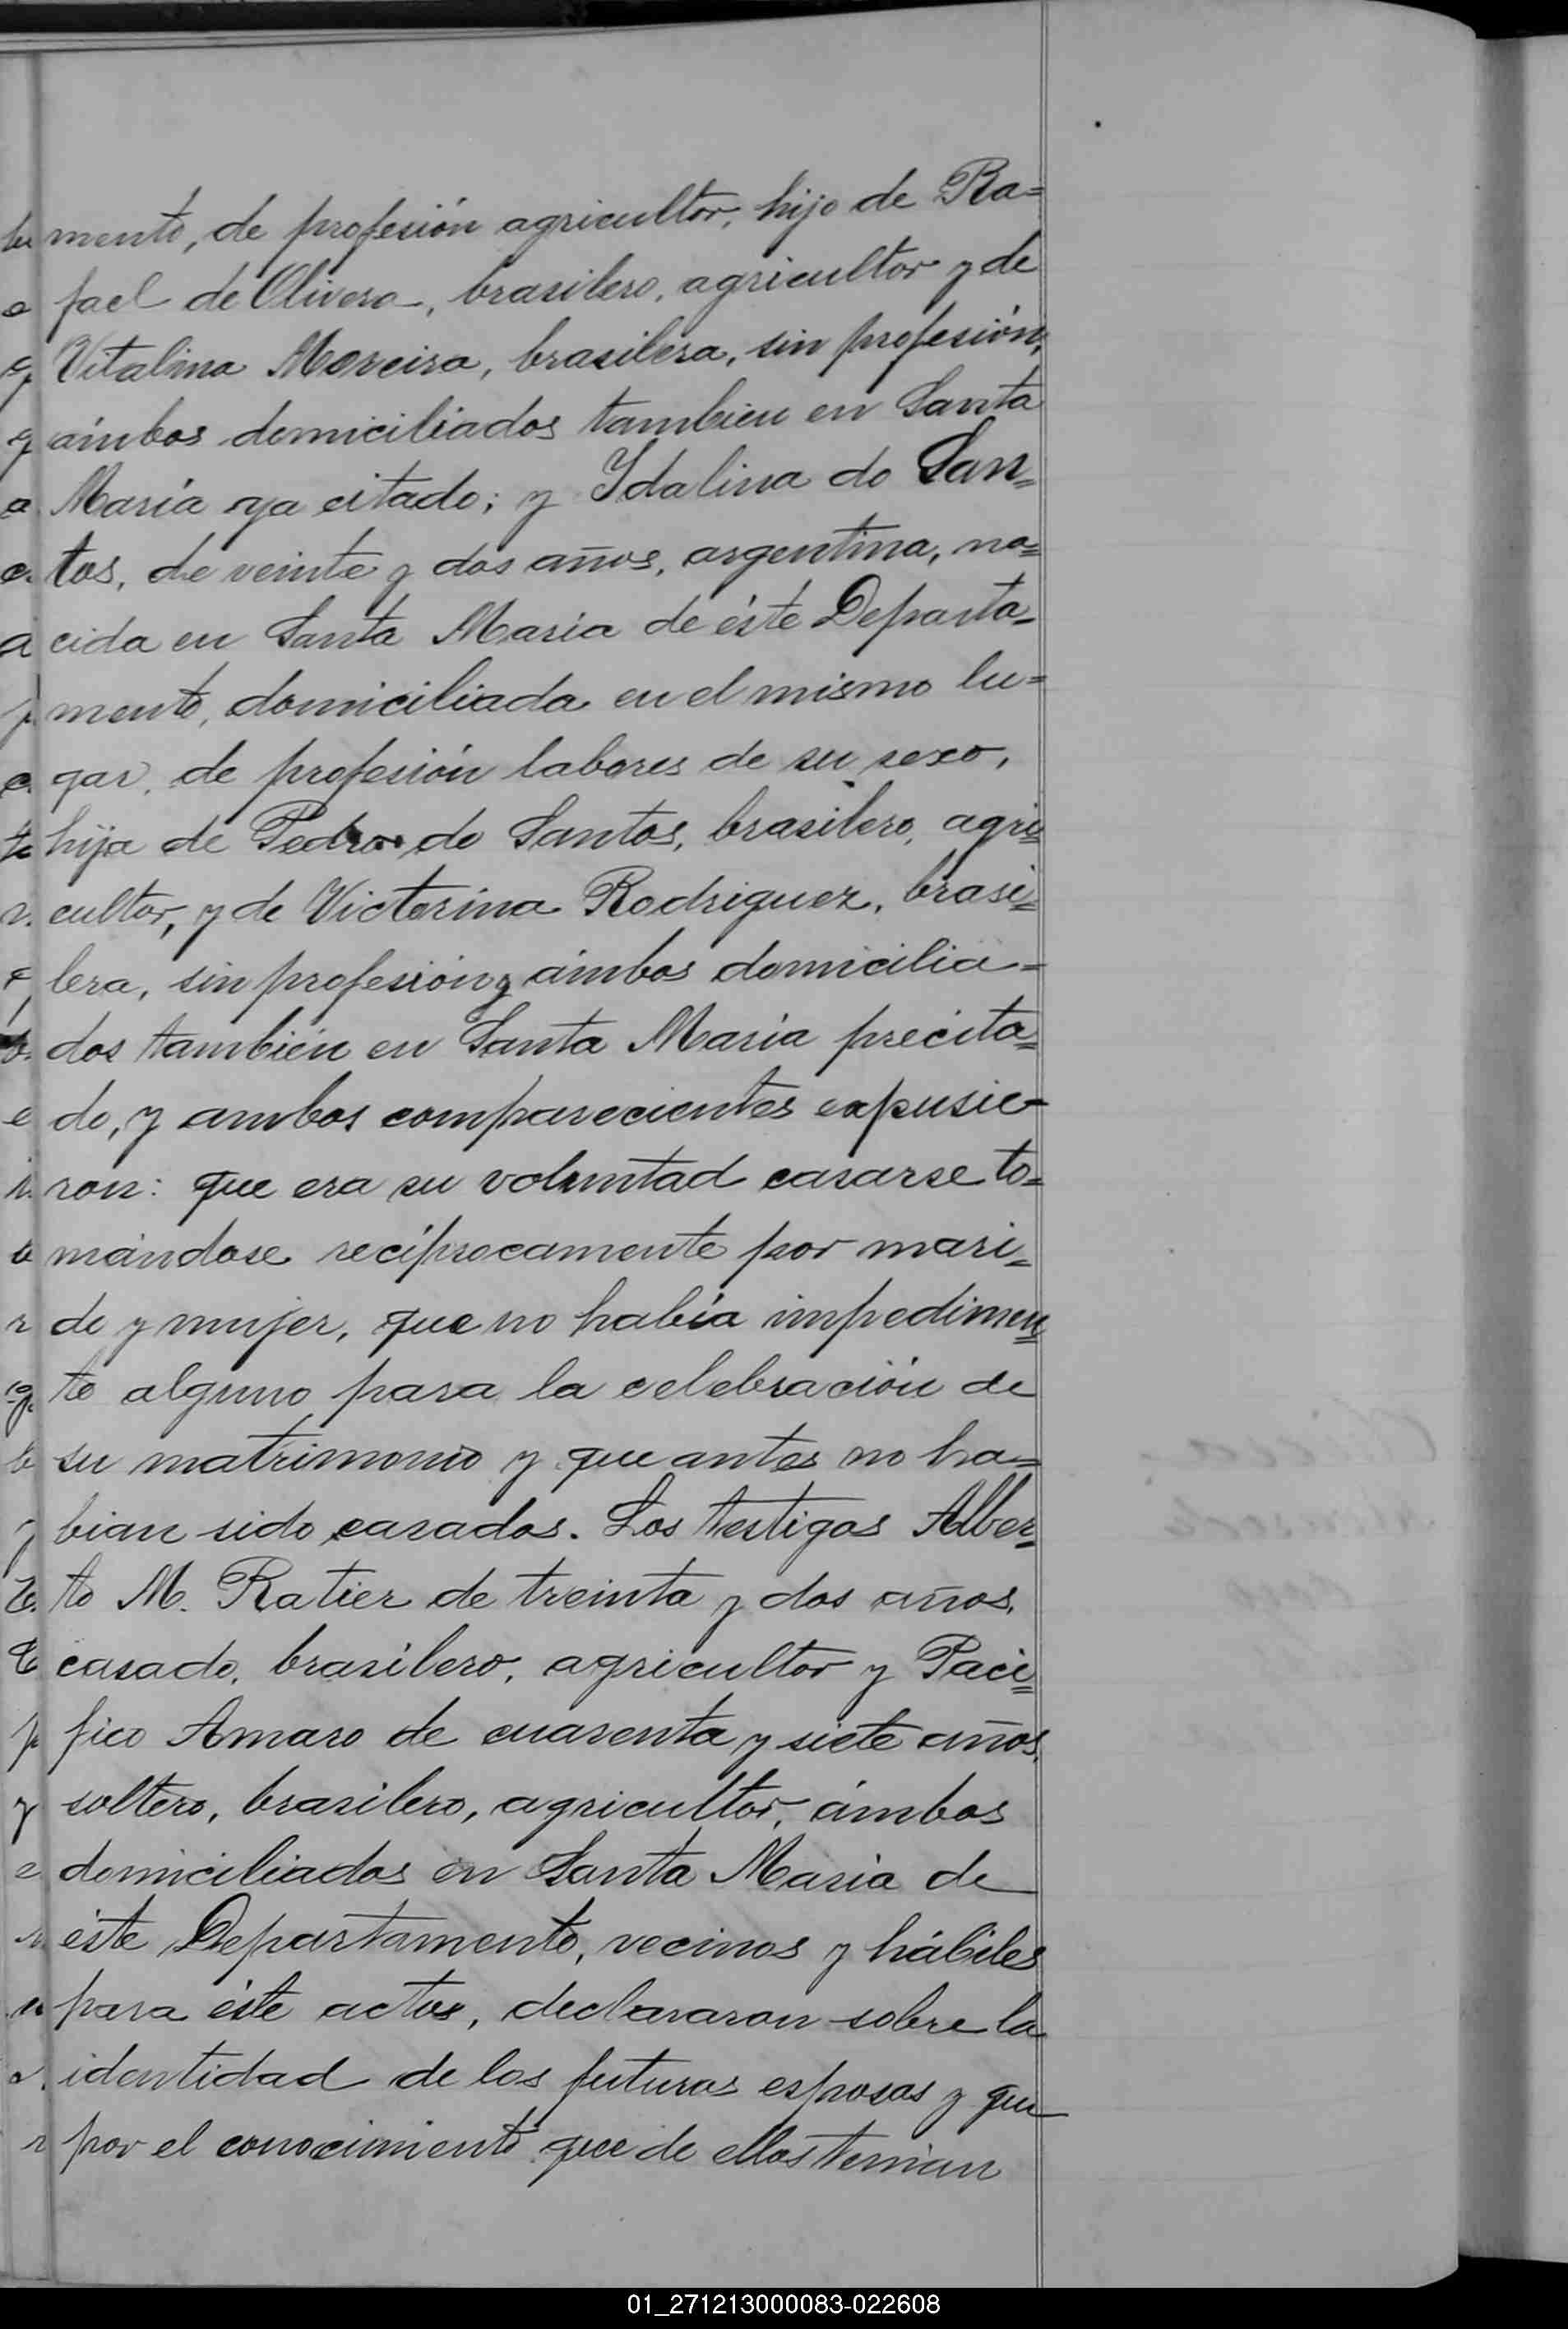 mento, de profesión agricultor, hijo de Ra=
fael de Olivera, brasilero, agricultor y de
Vitalina Moreira, brasilera, sin profesión,
ámbos domiciliados tambien en Santa
María ya citado; y Ydalina do San=
tos, de veinte y dos años, argentina, na=
cida en Santa María de éste Departa=
mento, domiciliada en el mismo lu=
gar, de profesión labores de su sexo,
hija de Pedro do Santos, brasilero, agri=
cultor, y de Victorina Rodriguez, brasi=
lera, sin profesión y ámbos domicilia=
dos también en Santa María precita=
do, y ambos comparecientes expusie=
ron: que era su voluntad casarse to=
mándose recíprocamente por mari=
do y mujer, que no había impedimen=
to alguno para la celebración de
su matrimonio y que antes no ha=
bian sido casados. Los testigos Alber=
to M. Ratier de treinta y dos años,
casado, brasilero, agricultor y Pací=
fico Amaro de cuarenta y siete años,
soltero, brasilero, agricultor, ámbos
domiciliados en Santa María de
éste Departamento, vecinos y hábiles
para éste acto, declararon sobre la
identidad de los futuros esposos y que
por el conocimiento que de ellos tenían
01_271213000083-022608